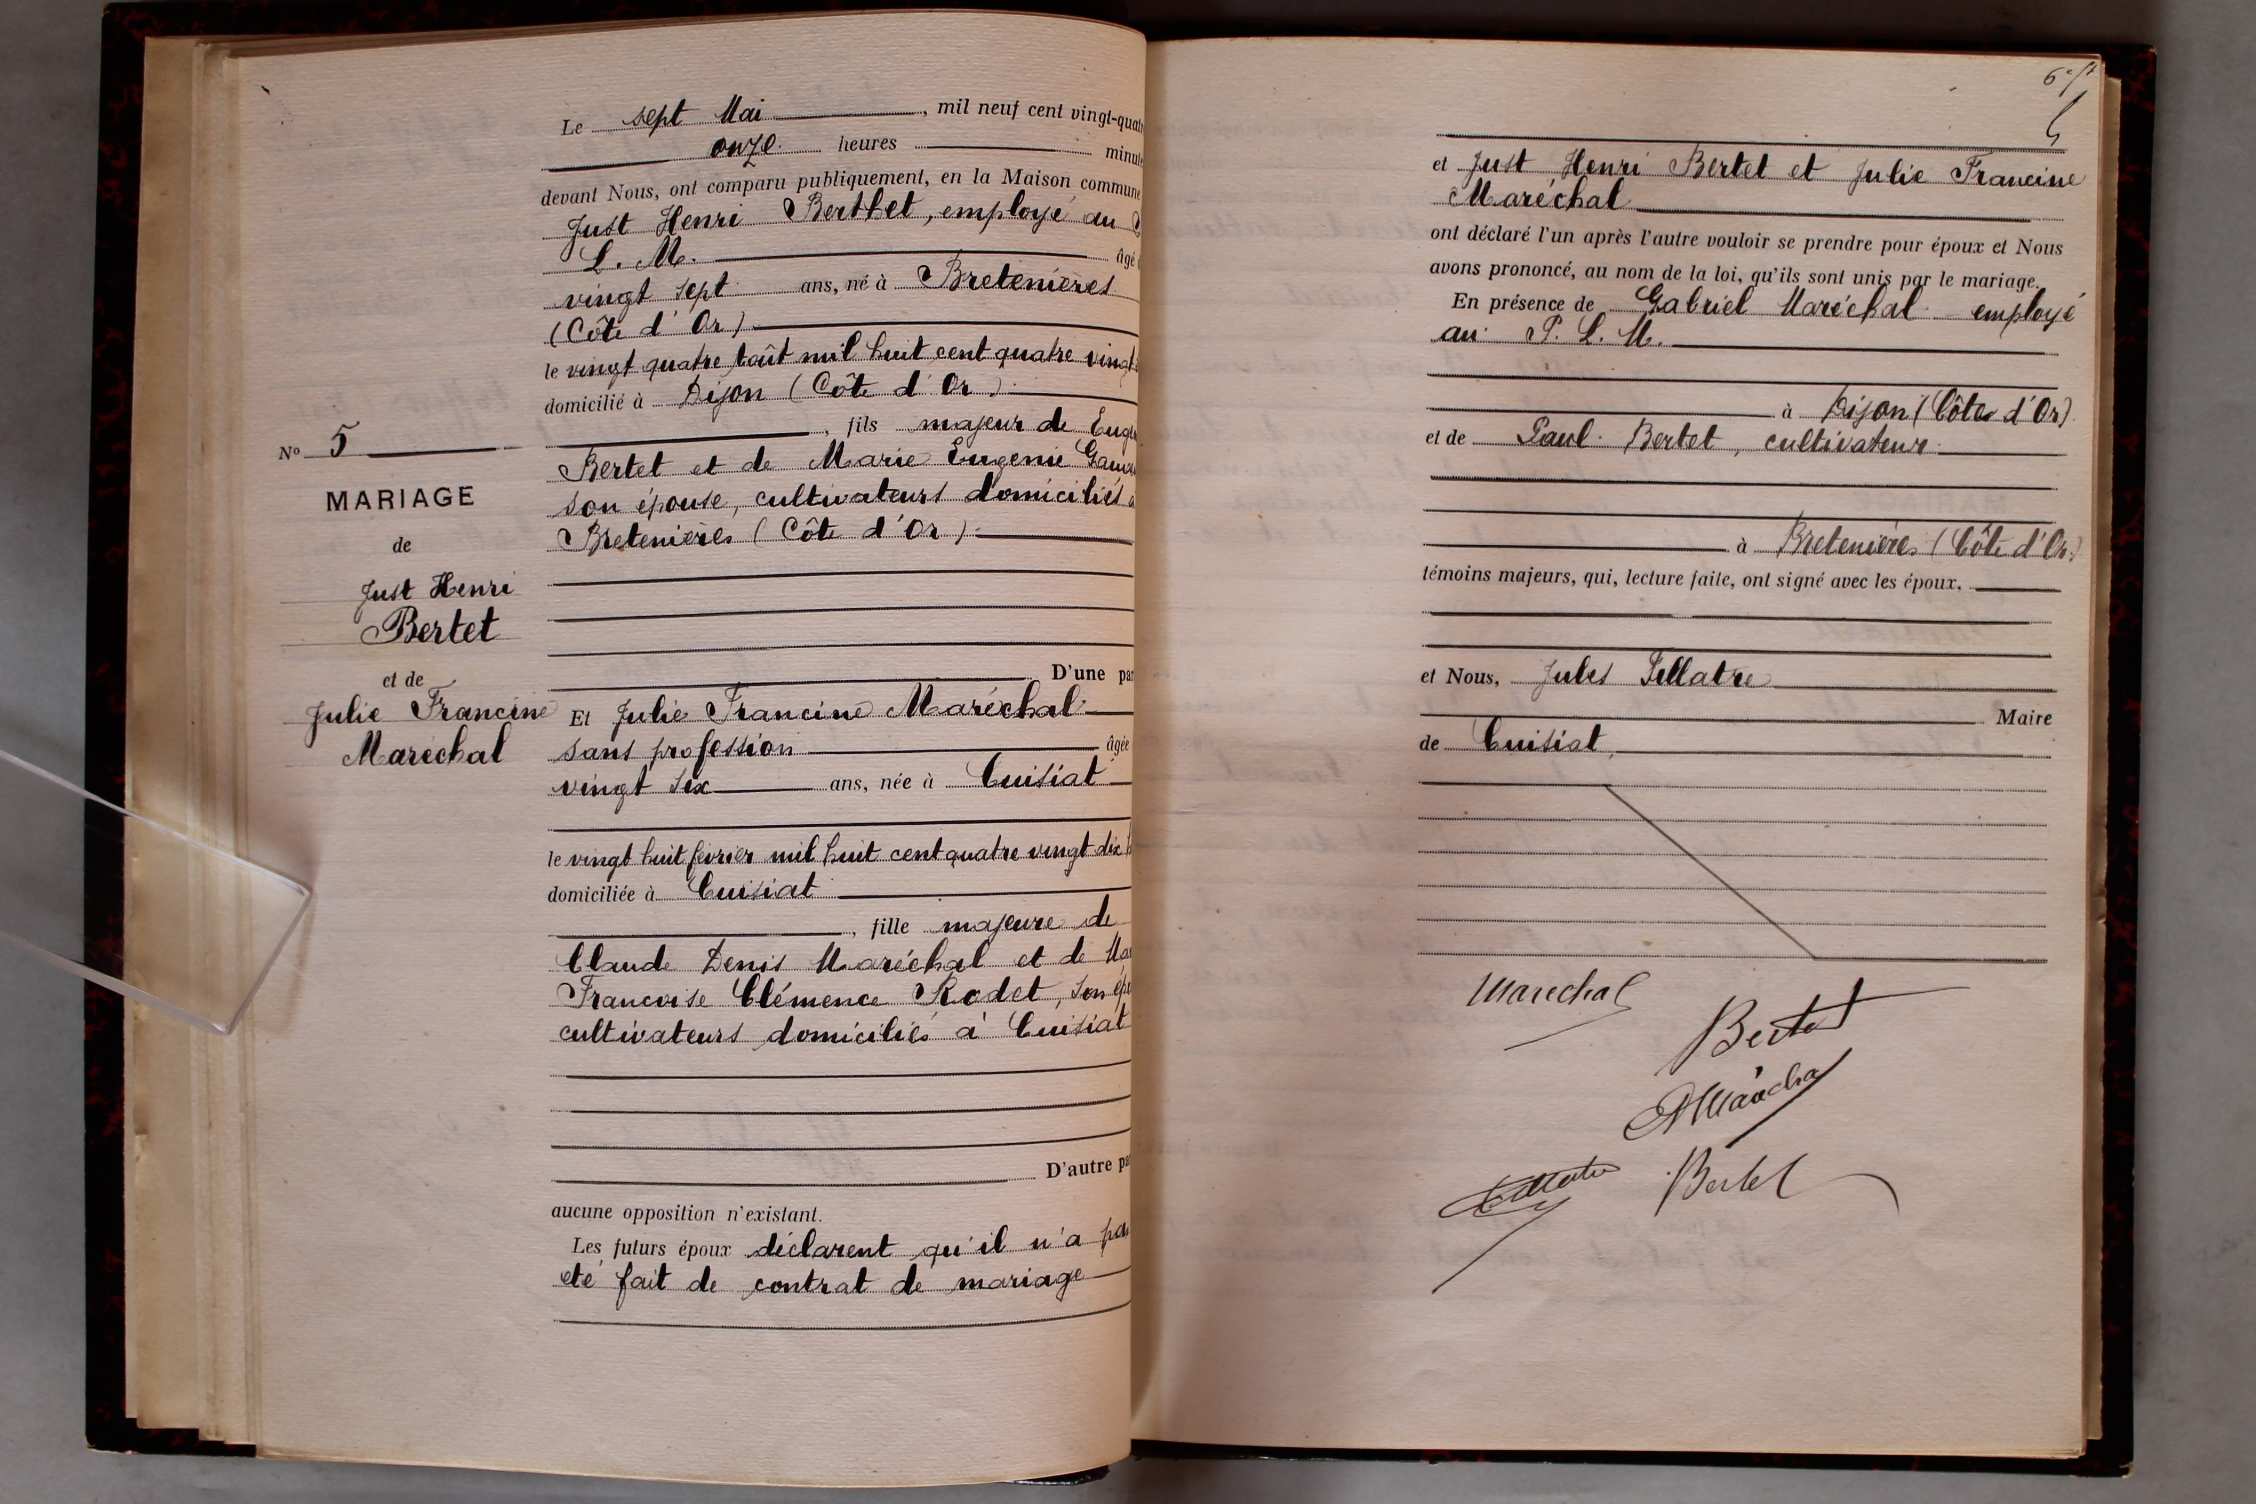 Le sept Mai, mil neuf cent vingt-quatre
onze heures minute
devant Nous, ont comparu publiquement, en la Maison commune
Just Henri Berthet, employé au P
L. M. âgé
vingt sept ans, né à Bretenières
(Côte d'Or)
le vingt quatre août mil huit cent quatre vingt
domicilié à Dijon (Côte d'Or)
, fils majeur de Eug
Bertet et de Marie Eugenie
son épouse, cultivateurs domiciliés à
Bretenières (Côte d'Or)
No 5
MARIAGE
de
Just Henri
Bertet
et de
Julie Francine
Maréchal
D'une par
Et Julie Francine Maréchal
sans profession âgée
vingt six ans, née à Cuisiat
le vingt huit février mil huit cent quatre vingt dix
domiciliée à Cuisiat
, fille majeure de
Claude Denis Maréchal et de Mar
Francoise Clémence Rodet, son épo
cultivateurs domiciliés à Cuisiat
D'autre par
aucune opposition n'existant.
Les futurs époux déclarent qu'il n'a pas
été fait de contrat de mariage
et Just Henri Bertet et Julie Francine
Maréchal
ont déclaré l'un après l'autre vouloir se prendre pour époux et Nous
avons prononcé, au nom de la loi, qu'ils sont unis par le mariage.
En présence de Gabriel Maréchal employé
au P. L. M.
à Dijon (Côte d'Or)
et de Paul Bertet, cultivateur
à Bretenières (Côte d'Or)
témoins majeurs, qui, lecture faite, ont signé avec les époux.
et Nous, Jules Tillatre
Maire
de Cuisiat
Marechal
Bertet
Bertet